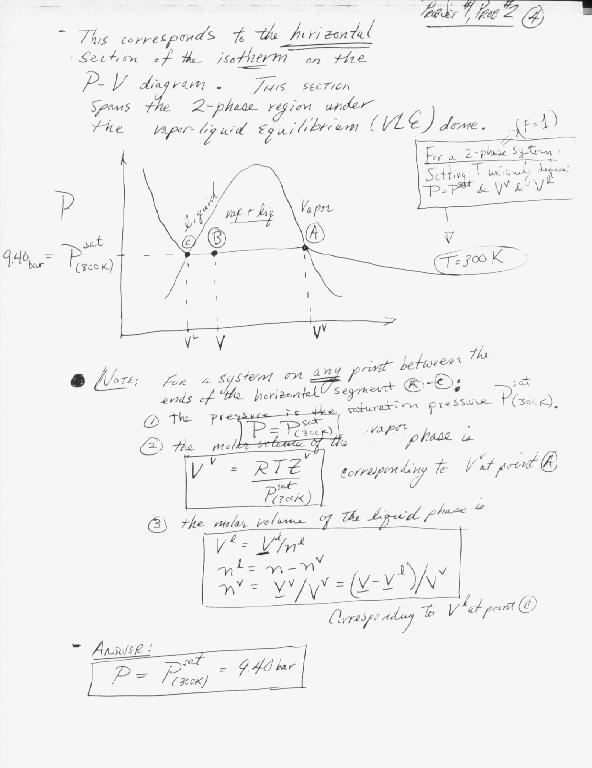 Problem #1, Prob #2 ④
- This corresponds to the horizontal
section of the isotherm on the
P-V diagram. THIS SECTION
spans the 2-phase region under
the vapor-liquid equilibrium (VLE) dome.
(F=1)
For a 2-phase system,
Setting T uniquely
P=P^sat & V^v & V^l
T=300K
P
liquid
vap + liq
Vapor
Ⓒ Ⓑ Ⓐ
9.40 bar = P^sat (300K)
V^L V V^V
NOTE: For a system on any point between the
ends of the horizontal segment Ⓐ-Ⓒ:
① The pressure is the saturation pressure P^sat (300K).
P=P^sat (300K)
② the molar volume of the vapor phase is
V^v = RTZ^v / P^sat (300K) corresponding to V^v at point Ⓐ
③ the molar volume of the liquid phase is
V^l = V^l/n^l
n^l = n-n^v
n^v = V^v/V^v = (V-V^l)/V^v
Corresponding to V^l at point Ⓒ
- ANSWER:
P = P^sat (300K) = 9.40 bar